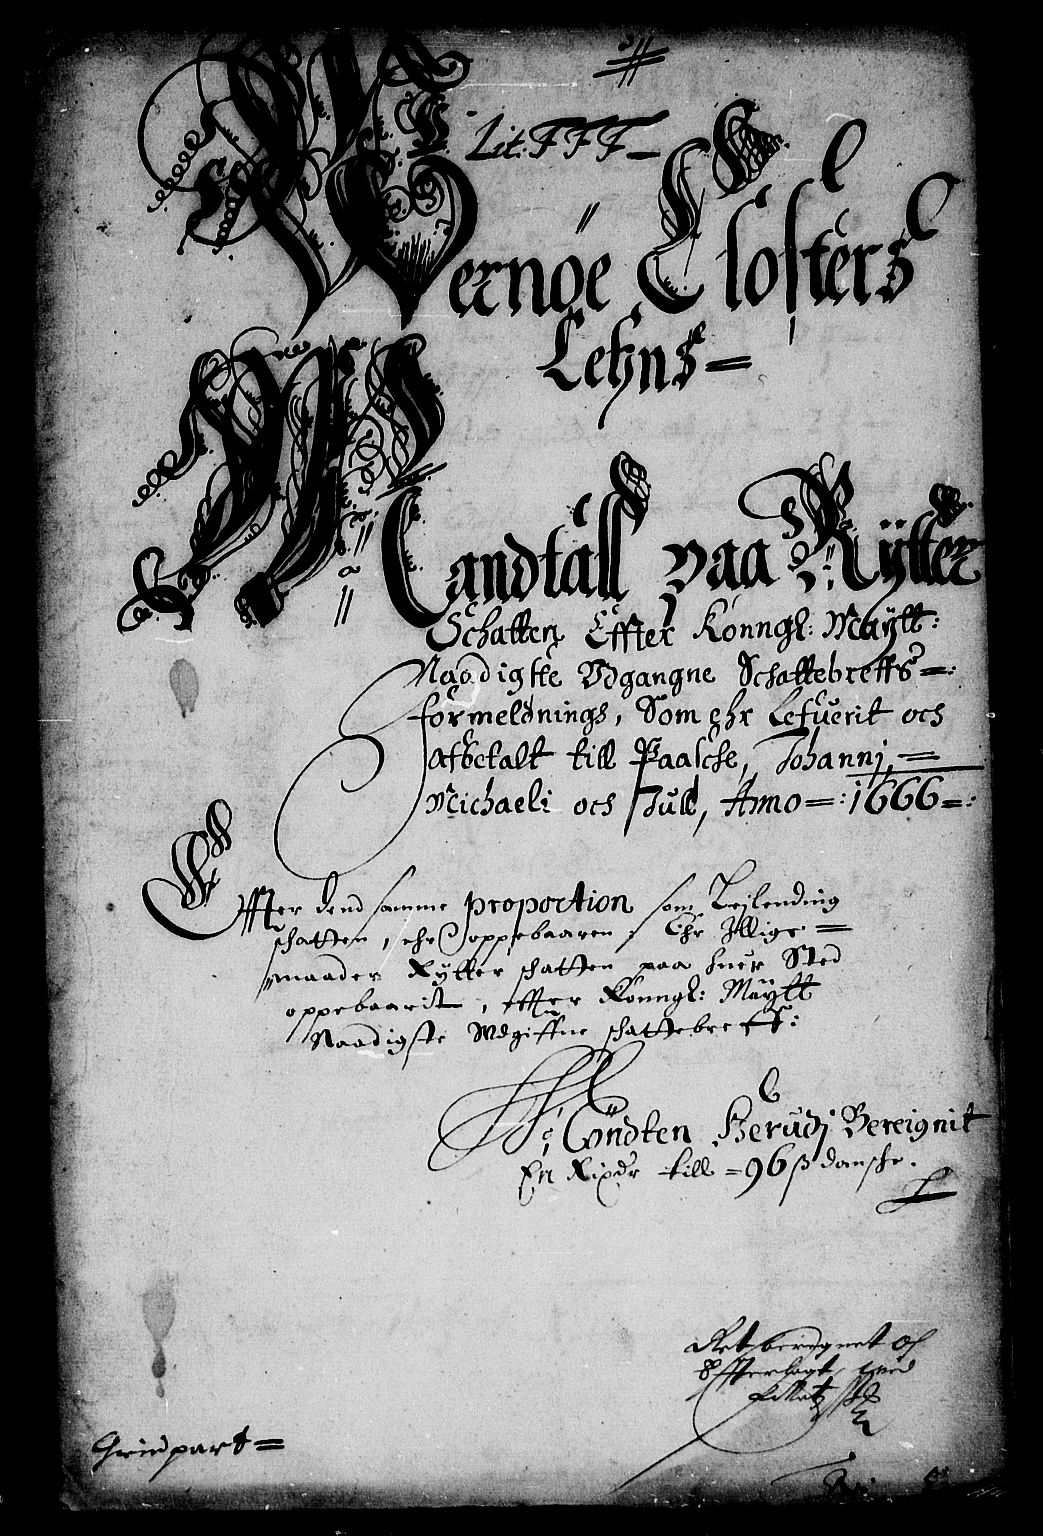 Lit. FFF
Wernøe Closters
Lehns
Mandtall paa Rÿtter
Schatten Effter Konngl: Maÿtt:
Naadigste Udgangne Schattebreffs
formeldnings, Som ehr Lefuerit och
afbetalt till Paasche, Johannj,
Michaeli och Jull, Anno 1666
Effter dend samme proportion som Leilending
schatten, ehr oppebaaren, Ehr Illige
maader Rÿtter schatten paa huer Sted
oppebaarit, effter Konngl: Maÿtt
Naadigste Udgiffne schattebreff:
Cöndten Herudj Bereignit
En Rixdr till 96 ß danske.
Ret beregnet og
Efterlagt med